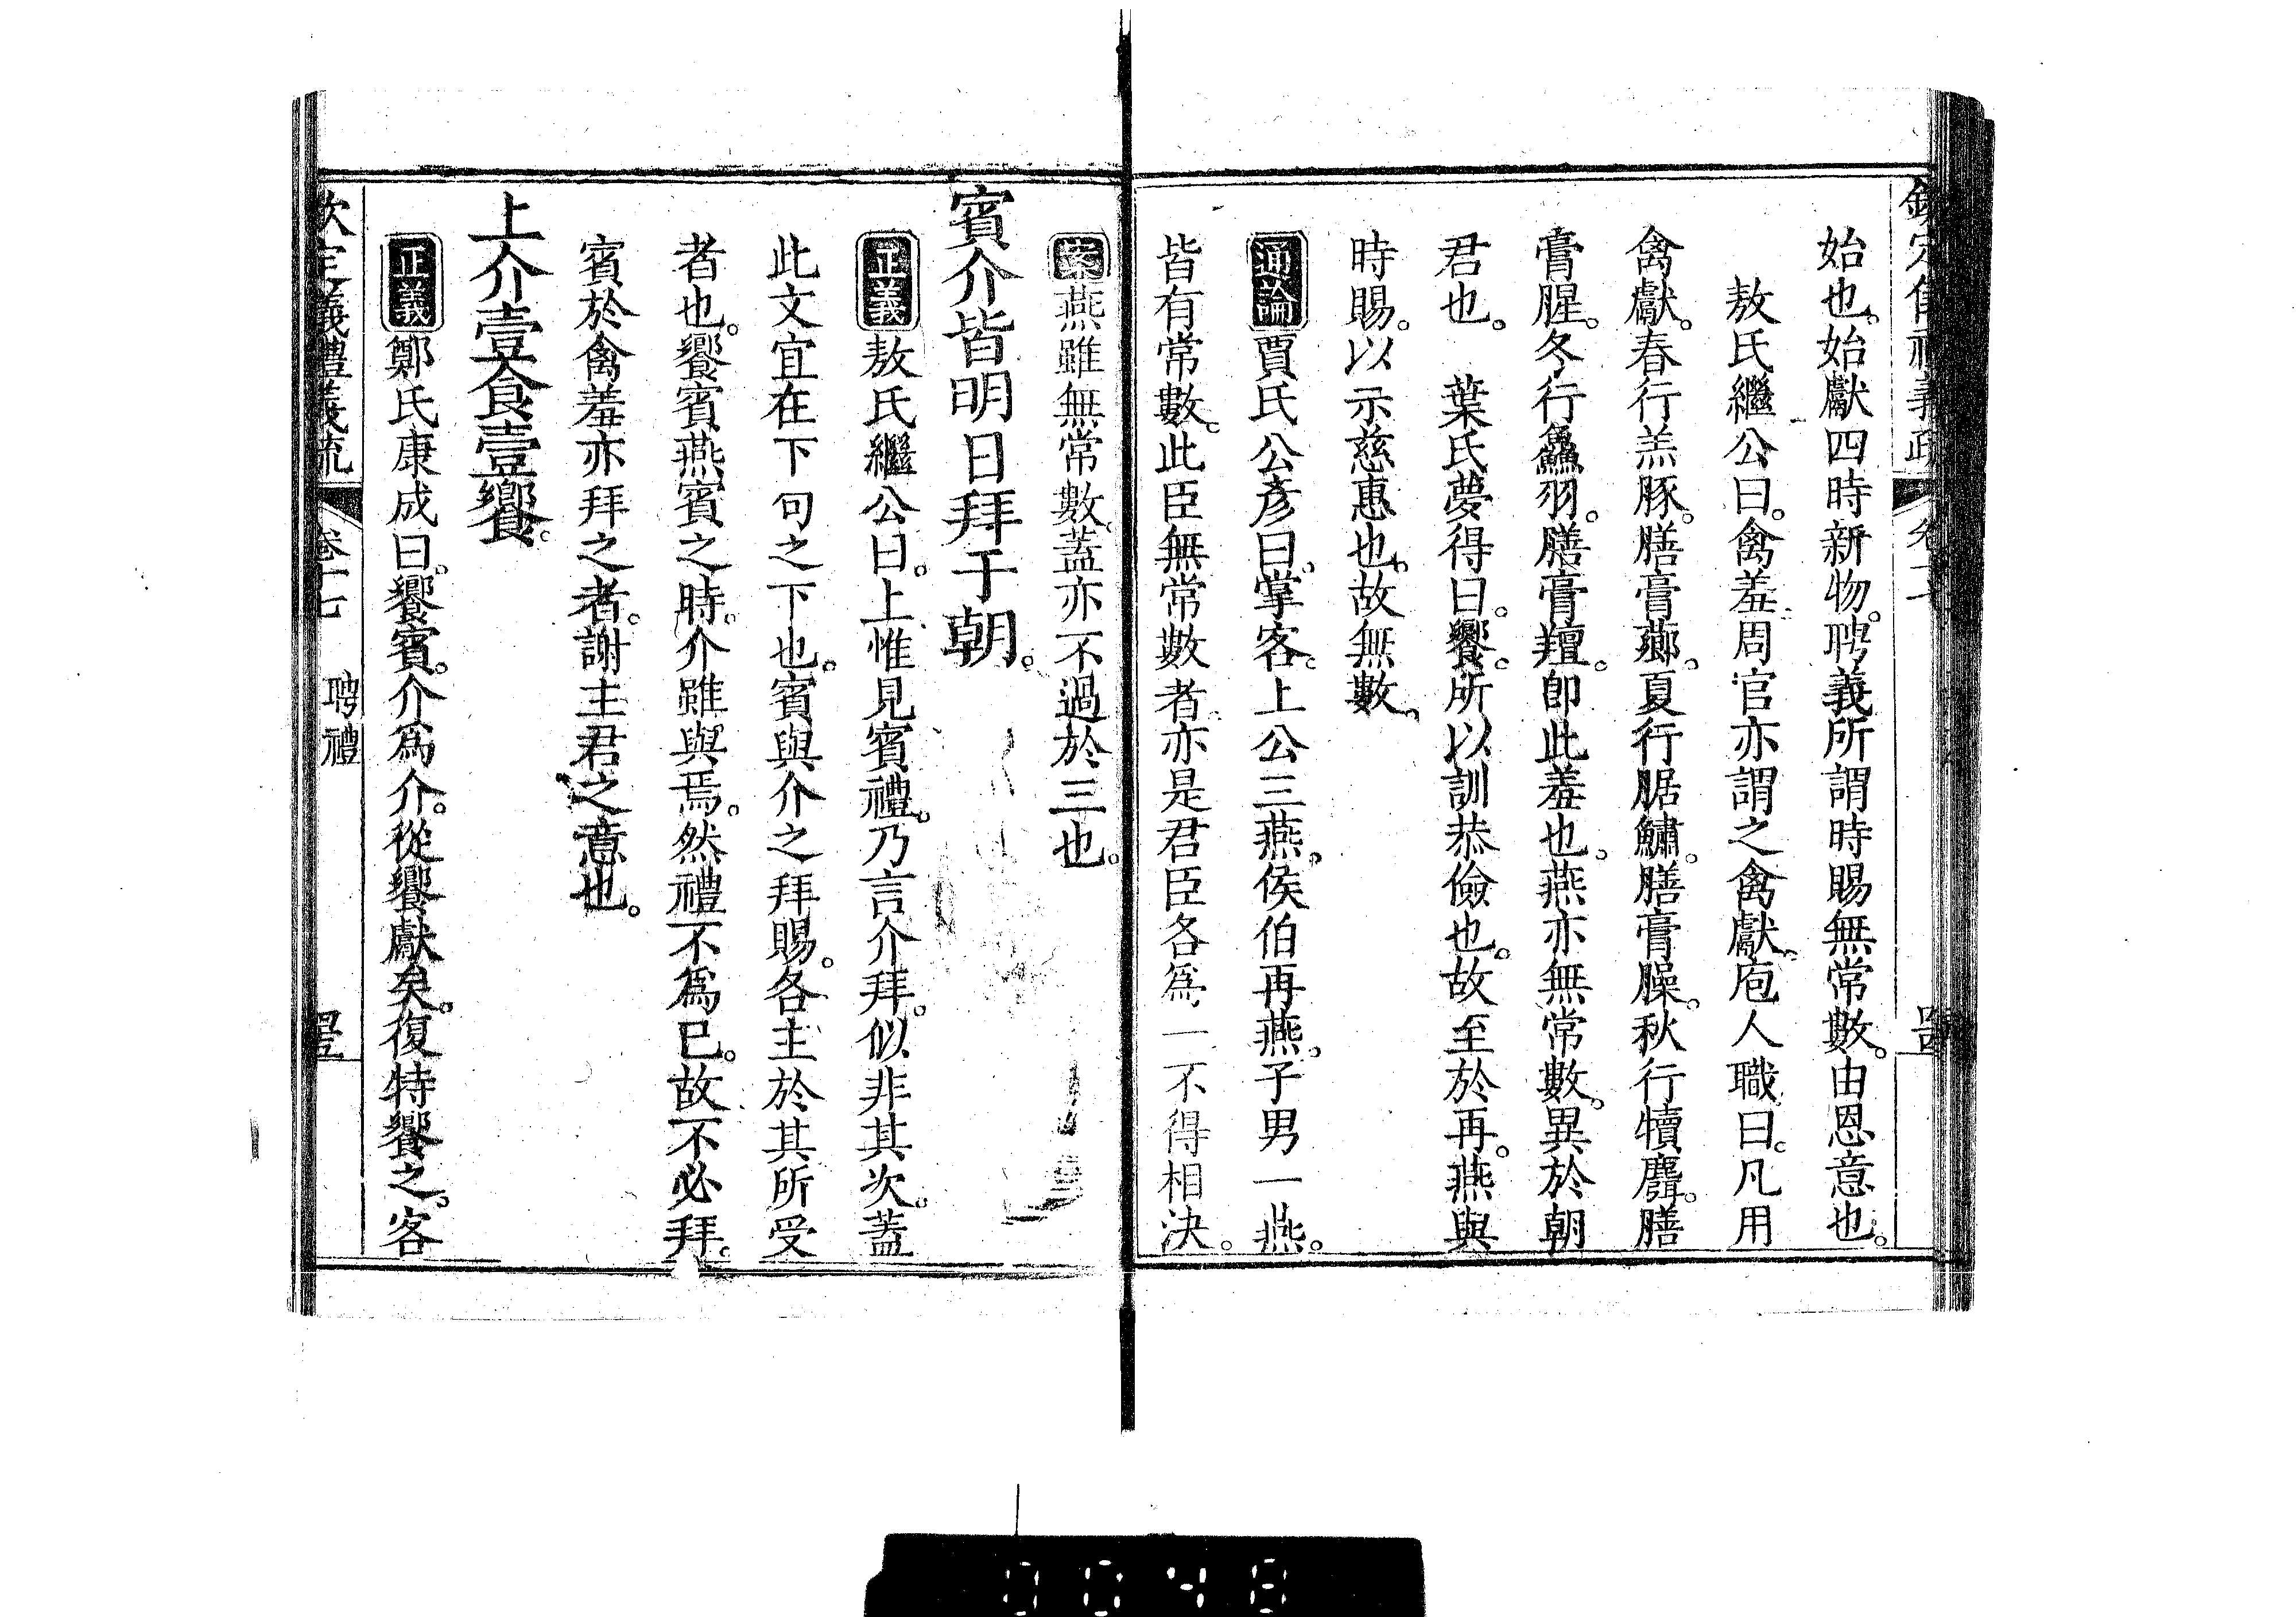 始也。始獻四時新物。聘義所謂時賜無常數。由恩意也。
敖氏繼公曰。禽羞周官亦謂之禽獻。庖人職曰。凡用
禽獻。春行羔豚。膳膏薌。夏行腒鱐。膳膏臊。秋行犢麛。膳
膏腥。冬行鱻羽。膳膏羶。卽此羞也。燕亦無常數。異於朝
君也。 葉氏夢得曰。饗。所以訓恭儉也。故至於再。燕與
時賜。以示慈惠也。故無數。
通論賈氏公彥曰。掌客。上公三燕。侯伯再燕。子男一燕。
皆有常數。此臣無常數者。亦是君臣各爲一。不得相決。
案燕雖無常數。蓋亦不過於三也。
賓介皆明日拜于朝。
正義敖氏繼公曰。上惟見賓禮。乃言介拜。似非其次。蓋
此文宜在下句之下也。賓與介之拜賜。各主於其所受
者也。饗賓燕賓之時。介雖與焉。然禮不爲已。故不必拜。
賓於禽羞亦拜之者。謝主君之意也。
上介壹食壹饗。
正義鄭氏康成曰。饗賓。介爲介。從饗獻矣。復特饗之。客
欽定義禮義疏 卷十七 聘禮 罣
0048